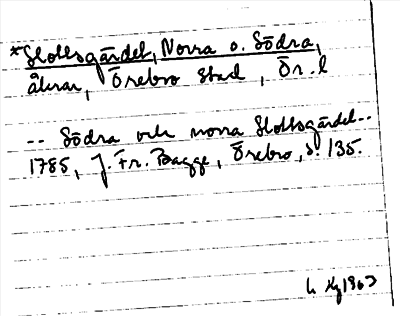 *Slottsgärdet, Norra o. Södra,
åkrar, Örebro stad, Ör. l
-- Södra och norra Slottsgärdet--
1785, J. Fr. Bagge, Örebro, s. 135.